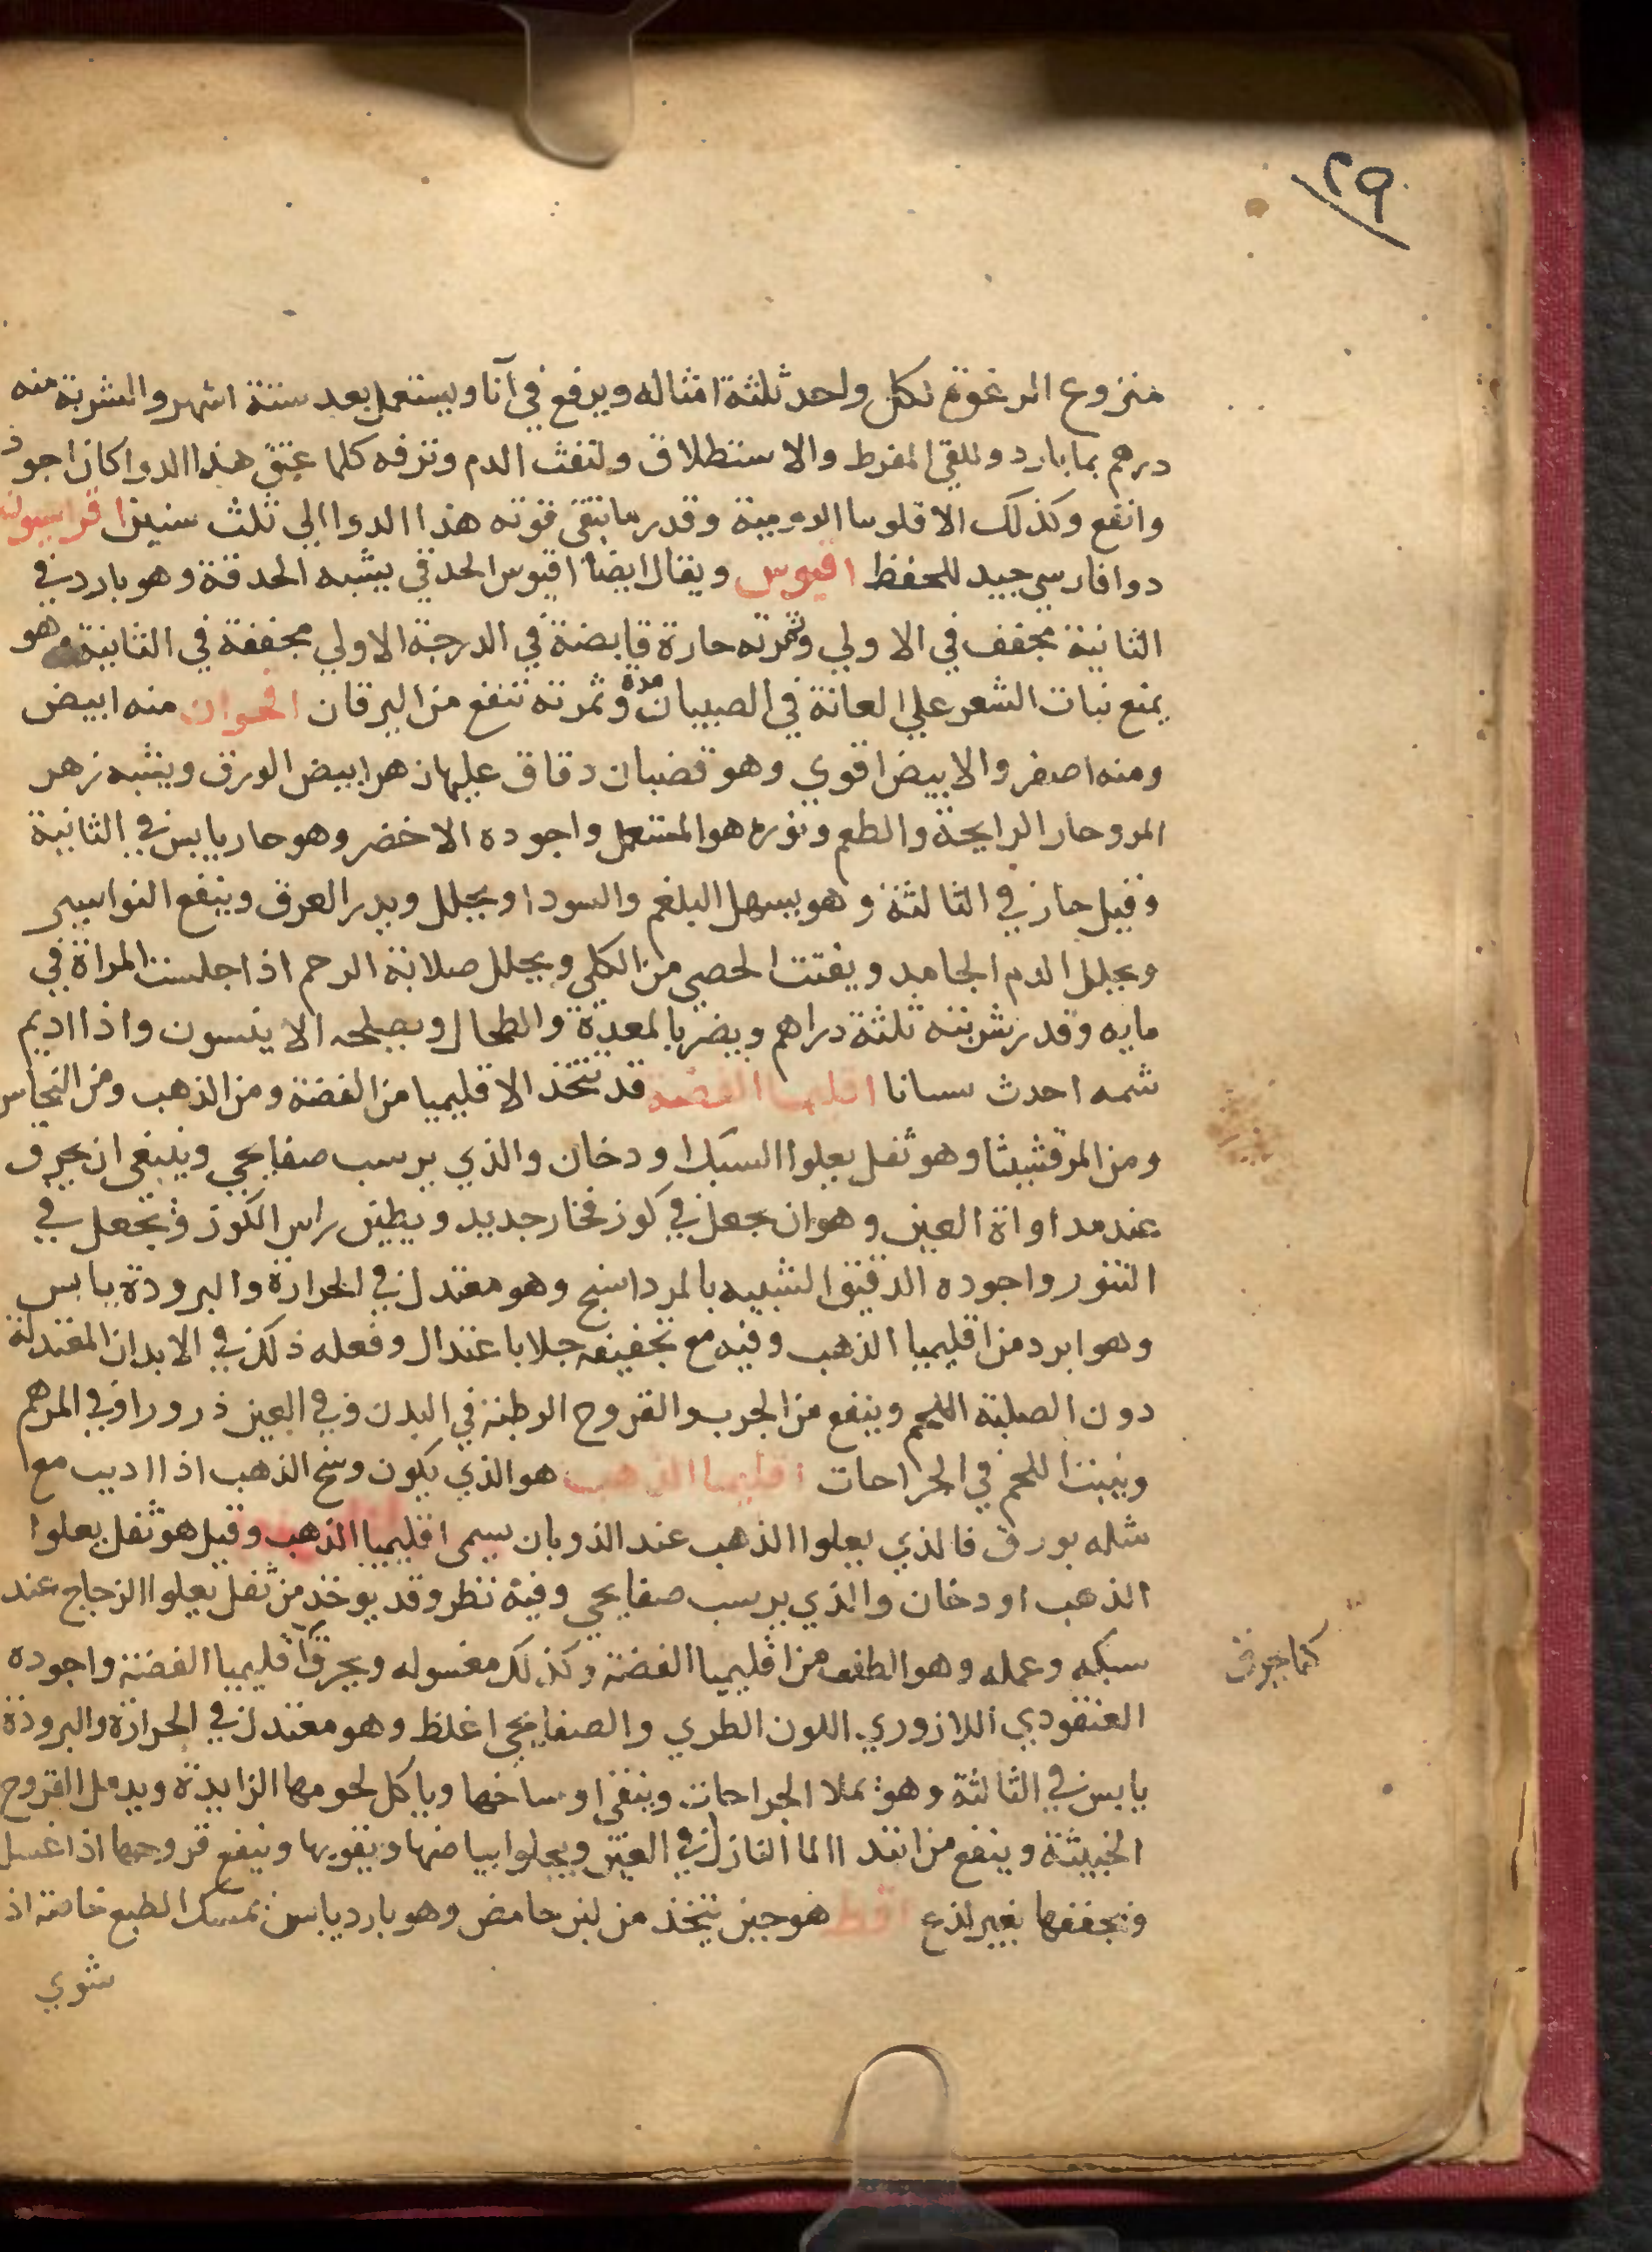 ٢٩
منزوع الرغوة لكل واحد ثلثة امثاله ويرفع في آنا ويستعمل بعد ستة اشهر والشربة منه
درهم بما بارد وللقي المفرط والاستطلاق ولنفث الدم ونزفه كلما عتق هذا الدوا كان اجود
وانفع وكذلك الاقلونيا الرومية وقدر ما تبقى قوته هذا الدوا الي ثلث سنين اقراسيون
دوا فارسي جيد للحفظ اقيوس ويقال ايضا اقيوس الحدقي يشبه الحدقة وهو بارد في
الثانية مجفف في الاولي وثمرته حارة قابضة في الدرجة الاولي مجففة في الثانية وهو
يمنع نبات الشعر علي العانة في الصبيان مدة وثمرته تنفع من اليرقان اقحوان منه ابيض
ومنه اصفر والابيض اقوي وهو قضبان دقاق عليها زهر ابيض الورق ويشبه زهر
المر وحار الرايحة والطعم ونوره هو المستعمل واجوده الاخضر وهو حار يابس في الثانية
وقيل حار في الثالثة وهو يسهل البلغم والسودا ويحلل ويدر العرق وينفع النواسير
ويحلل الدم الجامد ويفتت الحصي من الكلي ويحلل صلابة الرحم اذا جلست المراة في
مايه وقدر شربته ثلثة دراهم ويضر بالمعدة والطحال ويصلحه الاينسون واذا اديم
شمه احدث سباتا اقليميا الفضة قد تتخذ الاقليميا من الفضة ومن الذهب ومن النحاس
ومن المرقشيثا وهو ثفل يعلوا السبك او دخان والذي يرسب صفايحي وينبغي ان يحرق
عند مداواة العين وهو ان يجعل في كوز فخار جديد ويطين راس الكوز ويجعل في
التنور واجوده الدقيق الشبيه بالمرداسنج وهو معتدل في الحرارة والبرودة يابس
وهو ابرد من اقليميا الذهب وفيه مع تجفيفه جلا باعتدال وفعله ذلك في الابدان المعتدلة
دون الصلبة اللحم وينفع من الجرب والقروح الرطبة في البدن وفي العين ذرورا وفي المرهم
وينبت اللحم في الجراحات اقليميا الذهب هو الذي يكون وسخ الذهب اذا اديب مع
مثله بورق فالذي يعلوا الذهب عند الذوبان يسمى اقليميا الذهب وقيل هو ثفل يعلوا
الذهب او دخان والذي يرسب صفايحي وفيه نظر وقد يوخذ من ثفل يعلوا الزجاج عند
سبكه وعمله وهو الطف من اقليميا الفضة وكذلك مغسوله ويحرق اقليميا الفضة واجوده
كما يحرق
العنقودي اللازوردي اللون الطري والصفايحي اغلظ وهو معتدل في الحرارة والبرودة
يابس في الثالثة وهو يملا الجراحات وينقي اوساخها وياكل لحومها الزايدة ويدمل القروح
الخبيثة وينفع من ابتدا الما النازل في العين ويجلوا بياضها ويقويها وينفع قروحها اذا غسل
ويجففها بغير لذع اقط هو جبن يتخذ من لبن حامض وهو بارد يابس يمسك الطبع خاصة اذا
شوي